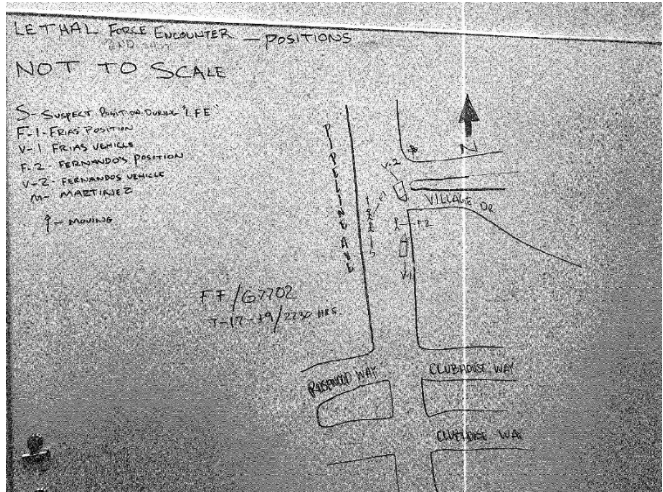 LETHAL FORCE ENCOUNTER — POSITIONS
NOT TO SCALE
S- SUSPECT POSITION DURING "LFE"
F-1- FRIAS POSITION
V-1 FRIAS VEHICLE
F-2- FERNANDO'S POSITION
V-2- FERNANDOS VEHICLE
M- MARTINEZ
- MOVING
N
V-2
VILLAGE DR
PIPELINE AVE
F-2
S
V-1
FF/G7702
2230 HRS
ROSEWOOD WAY
CLUBHOUSE WAY
CLUBHOUSE WAY